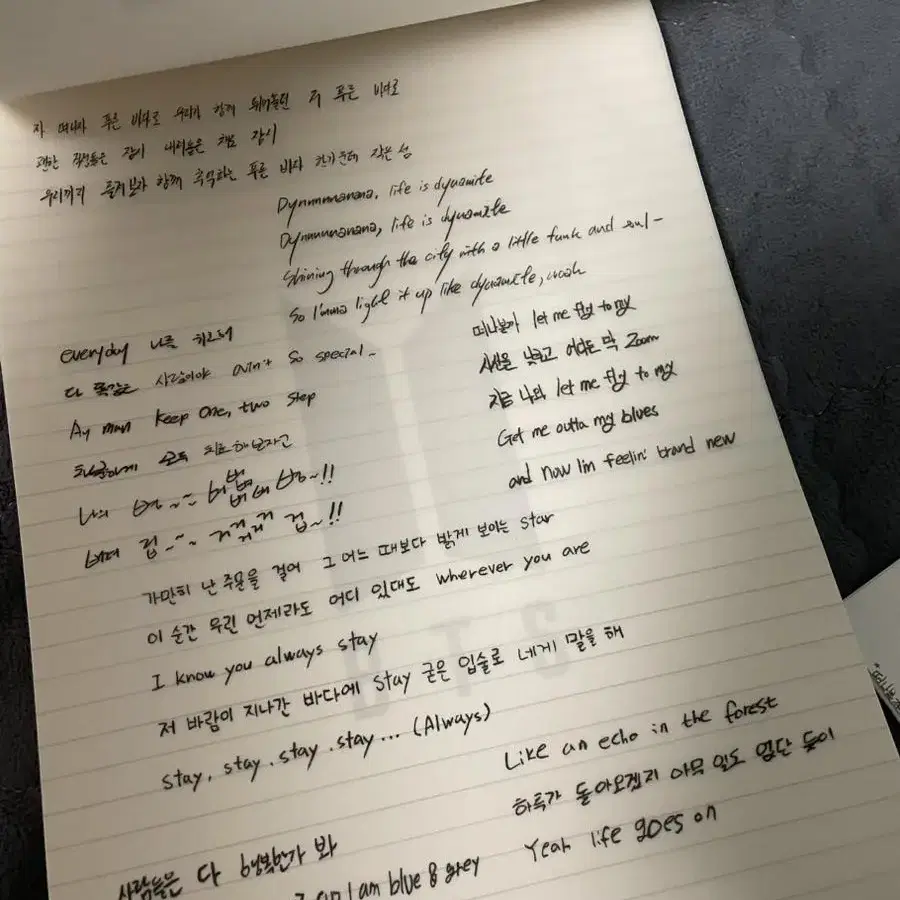 자 떠나자 푸른 바다로 우리가 함께 뛰어놀던 저 푸른 바다로
괜한 걱정들은 잠시 내려놓은 채로 잠시
우리끼리 즐겨보자 함께 추억하는 푸른 바다 한가운데 작은 섬
Dynnnnnanana, life is dynamite
Dynnnnnanana, life is dynamite
Shining through the city with a little funk and soul-
So I'mma light it up like dynamite, woah
everyday 나를
다 똑같은 사람이야 ain't so special~
Ay man keep one, two step
모두 치료해보자고
나의
떠나볼까 let me fly to my
시선을 낮추고 어디든 막 Zoom
지금 나와 let me fly to my
Get me outta my blues
and now I'm feelin' brand new
가만히 난 주문을 걸어 그 어느 때보다 밝게 보이는 star
이 순간 우린 언제라도 어디 있대도 wherever you are
I know you always stay
저 바람이 지나간 바다에 stay 굳은 입술로 네게 말을 해
stay, stay. stay. stay... (Always)
Like an echo in the forest
하루가 돌아오겠지 아무 일도 없단 듯이
Yeah life goes on
사람들은 다 행복한가 봐
I am blue & grey
BTS